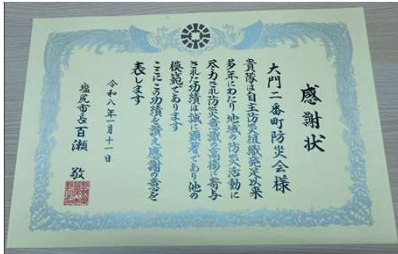 感謝状
大門二番町防災会様
貴隊は自主防災組織発足以来
多年にわたり地域の防災活動に
尽力され防災意識の高揚に寄与
された功績は誠に顕著であり他の
模範であります
ここにその功績を讃え感謝の意を
表します
令和八年一月十一日
塩尻市長 百瀬 敬